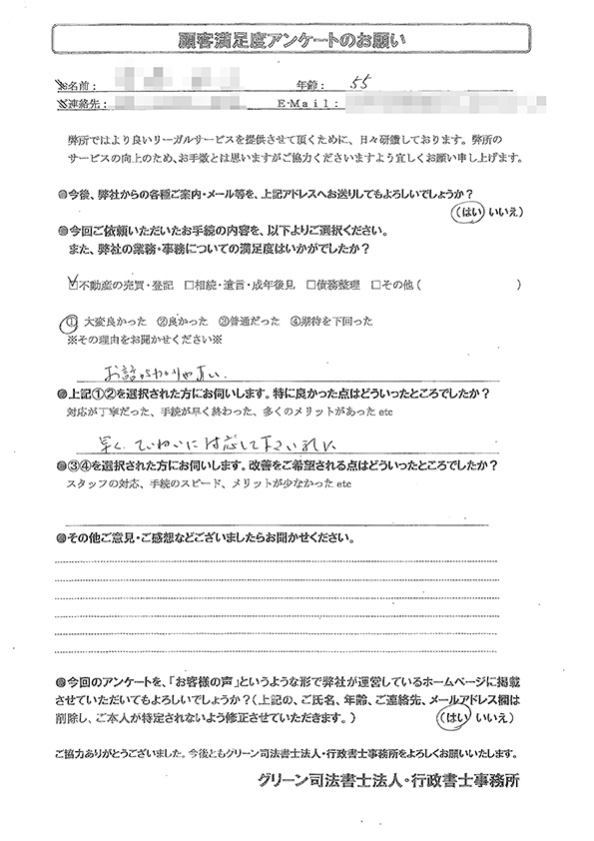 顧客満足度アンケートのお願い
お名前： 年齢： 55
ご連絡先： E-Mail：
弊所ではより良いリーガルサービスを提供させて頂くために、日々研鑽しております。弊所の
サービスの向上のため、お手数とは思いますがご協力くださいますよう宜しくお願い申し上げます。
●今後、弊社からの各種ご案内・メール等を、上記アドレスへお送りしてもよろしいでしょうか？
（はい いいえ）
●今回ご依頼いただいたお手続の内容を、以下よりご選択ください。
また、弊社の業務・事務についての満足度はいかがでしたか？
☑不動産の売買・登記 □相続・遺言・成年後見 □債務整理 □その他（ ）
① 大変良かった ②良かった ③普通だった ④期待を下回った
※その理由をお聞かせください※
お話がわかりやすい。
●上記①②を選択された方にお伺いします。特に良かった点はどういったところでしたか？
対応が丁寧だった、手続が早く終わった、多くのメリットがあった etc
早く、ていねいに対応して下さいました
●③④を選択された方にお伺いします。改善をご希望される点はどういったところでしたか？
スタッフの対応、手続のスピード、メリットが少なかった etc
●その他ご意見・ご感想などございましたらお聞かせください。
●今回のアンケートを、「お客様の声」というような形で弊社が運営しているホームページに掲載
させていただいてもよろしいでしょうか？（上記の、ご氏名、年齢、ご連絡先、メールアドレス欄は
削除し、ご本人が特定されないよう修正させていただきます。） （はい いいえ）
ご協力ありがとうございました。今後ともグリーン司法書士法人・行政書士事務所をよろしくお願いいたします。
グリーン司法書士法人・行政書士事務所